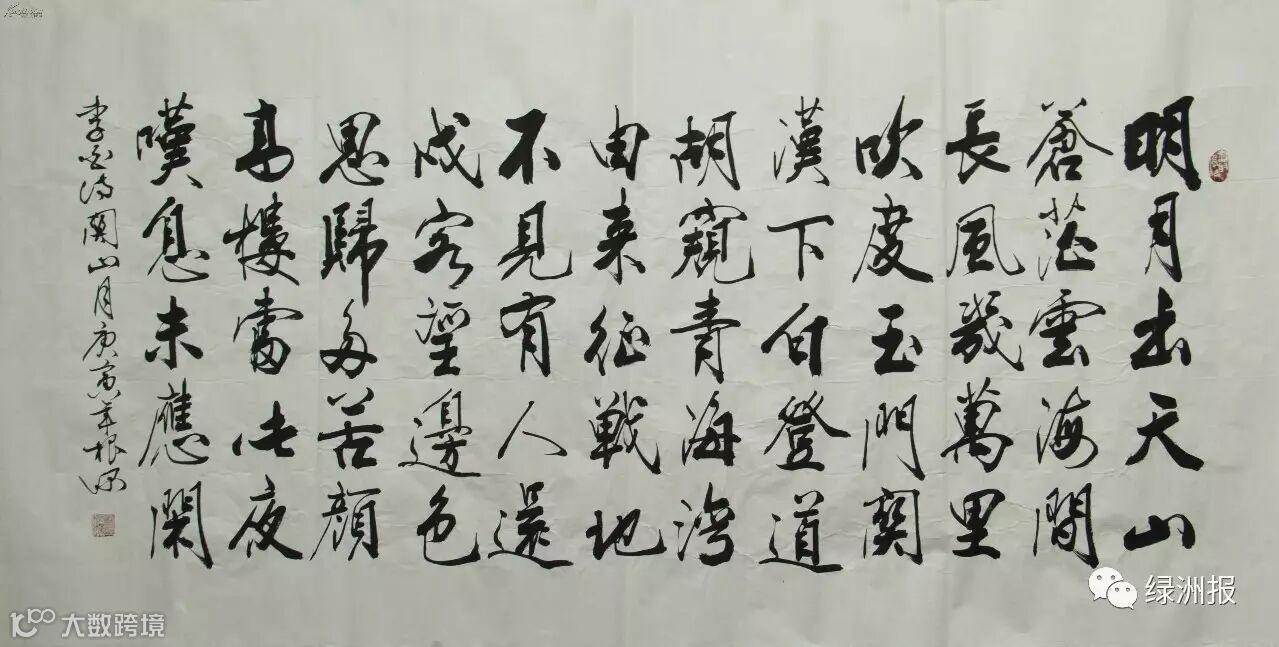 明月出天山
蒼茫雲海間
長風幾萬里
吹度玉門關
漢下白登道
胡窺青海灣
由来征戰地
不見有人還
戍客望邊色
思歸多苦顔
高樓當此夜
嘆息未應閑
李白詩關山月庚寅年根深
绿洲报
大数跨境